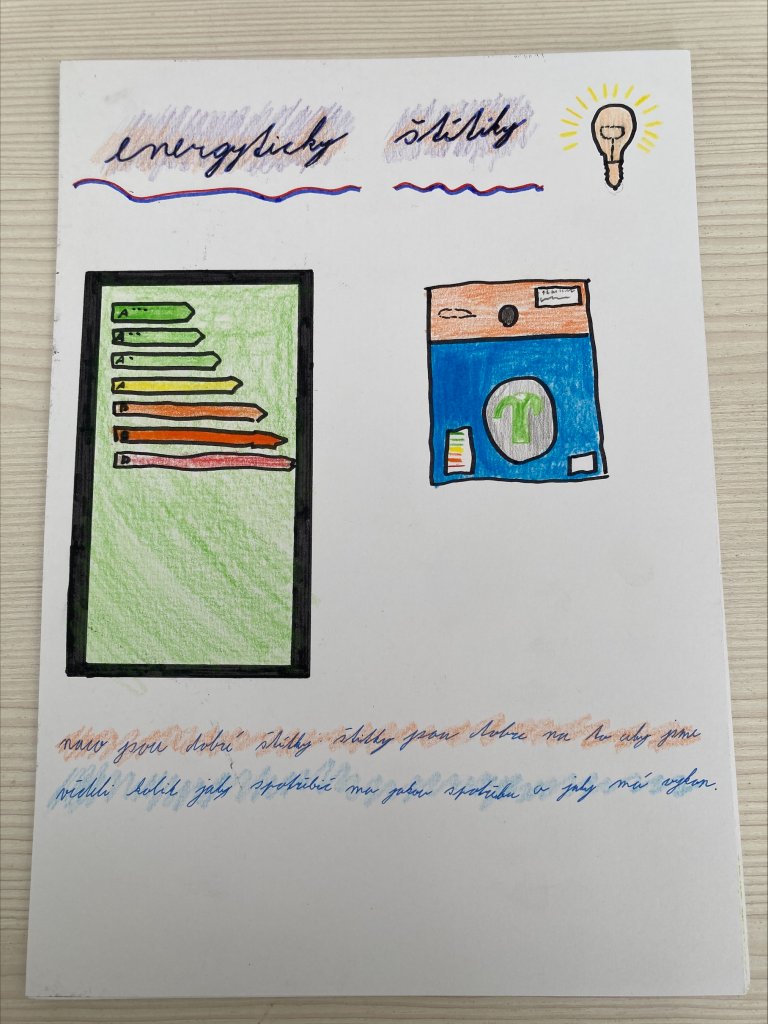 energyticky štítiky
A---
A--
A-
A
B
D
naco jsou dobré štitky štitky jsou dobre na to aby jsme
viděli kolik jaký spotřebič ma jakou spotřebu a jaky má vykon.